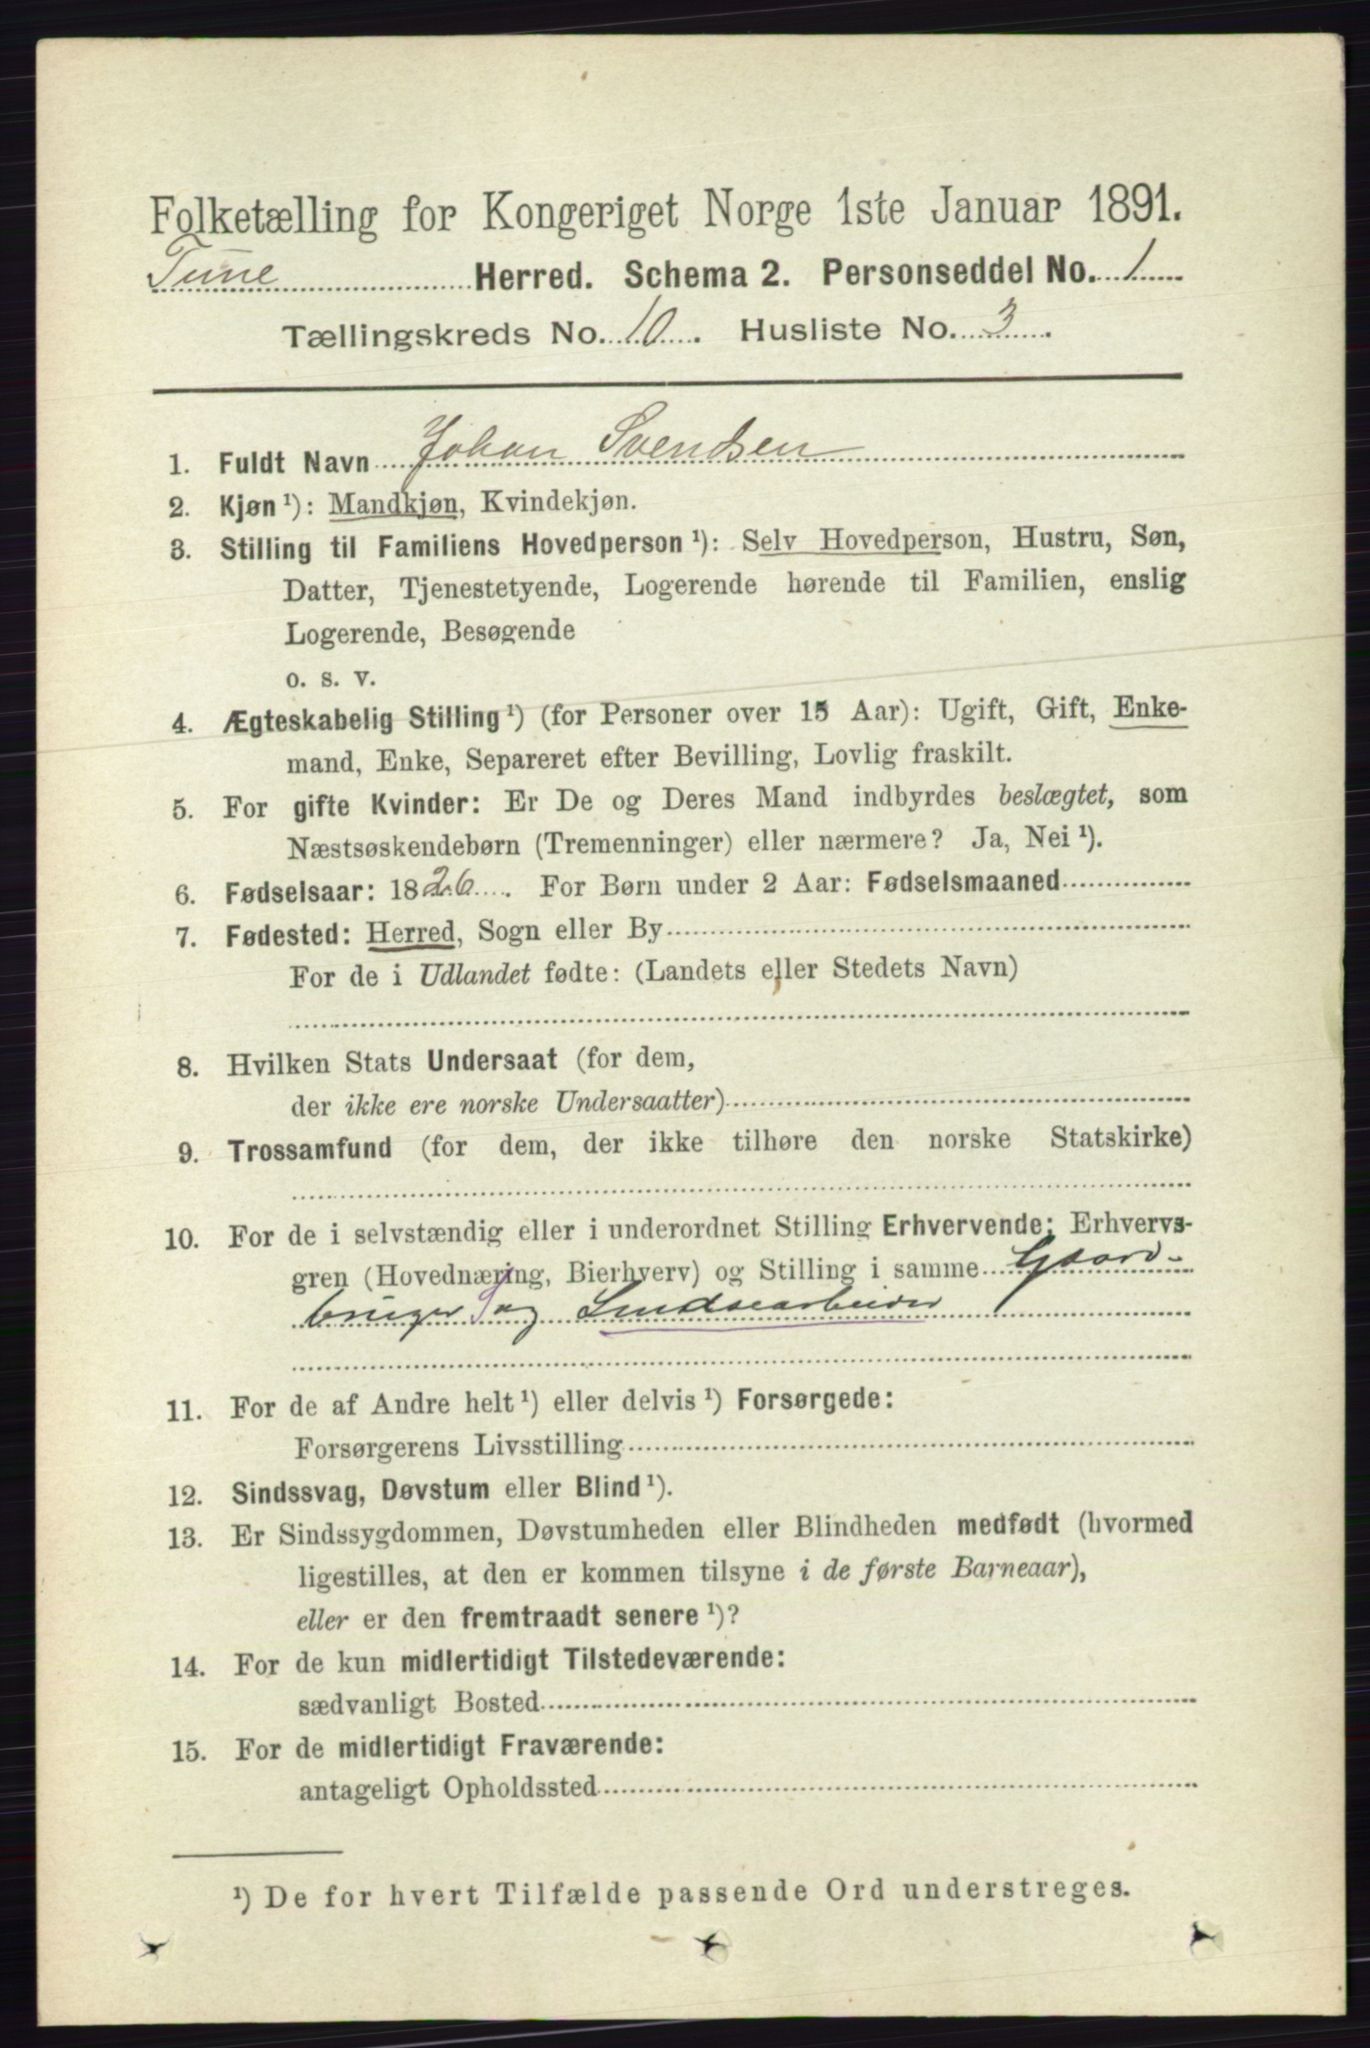 Folketælling for Kongeriget Norge 1ste Januar 1891.
Tune Herred. Schema 2. Personseddel No. 1
Tællingskreds No. 10. Husliste No. 3.
1. Fuldt Navn Johan Svendsen
2. Kjøn ¹): Mandkjøn, Kvindekjøn.
3. Stilling til Familiens Hovedperson ¹): Selv Hovedperson, Hustru, Søn,
Datter, Tjenestetyende, Logerende hørende til Familien, enslig
Logerende, Besøgende
o. s. v.
4. Ægteskabelig Stilling ¹) (for Personer over 15 Aar): Ugift, Gift, Enke-
mand, Enke, Separeret efter Bevilling, Lovlig fraskilt.
5. For gifte Kvinder: Er De og Deres Mand indbyrdes beslægtet, som
Næstsøskendebørn (Tremenninger) eller nærmere? Ja, Nei ¹).
6. Fødselsaar: 1826. For Børn under 2 Aar: Fødselsmaaned
7. Fødested: Herred, Sogn eller By
For de i Udlandet fødte: (Landets eller Stedets Navn)
8. Hvilken Stats Undersaat (for dem,
der ikke ere norske Undersaatter)
9. Trossamfund (for dem, der ikke tilhøre den norske Statskirke)
10. For de i selvstændig eller i underordnet Stilling Erhvervende: Erhvervs-
gren (Hovednæring, Bierhverv) og Stilling i samme Gaard-
bruger og
11. For de af Andre helt ¹) eller delvis ¹) Forsørgede:
Forsørgerens Livsstilling
12. Sindssvag, Døvstum eller Blind ¹).
13. Er Sindssygdommen, Døvstumheden eller Blindheden medfødt (hvormed
ligestilles, at den er kommen tilsyne i de første Barneaar),
eller er den fremtraadt senere ¹)?
14. For de kun midlertidigt Tilstedeværende:
sædvanligt Bosted
15. For de midlertidigt Fraværende:
antageligt Opholdssted
¹) De for hvert Tilfælde passende Ord understreges.